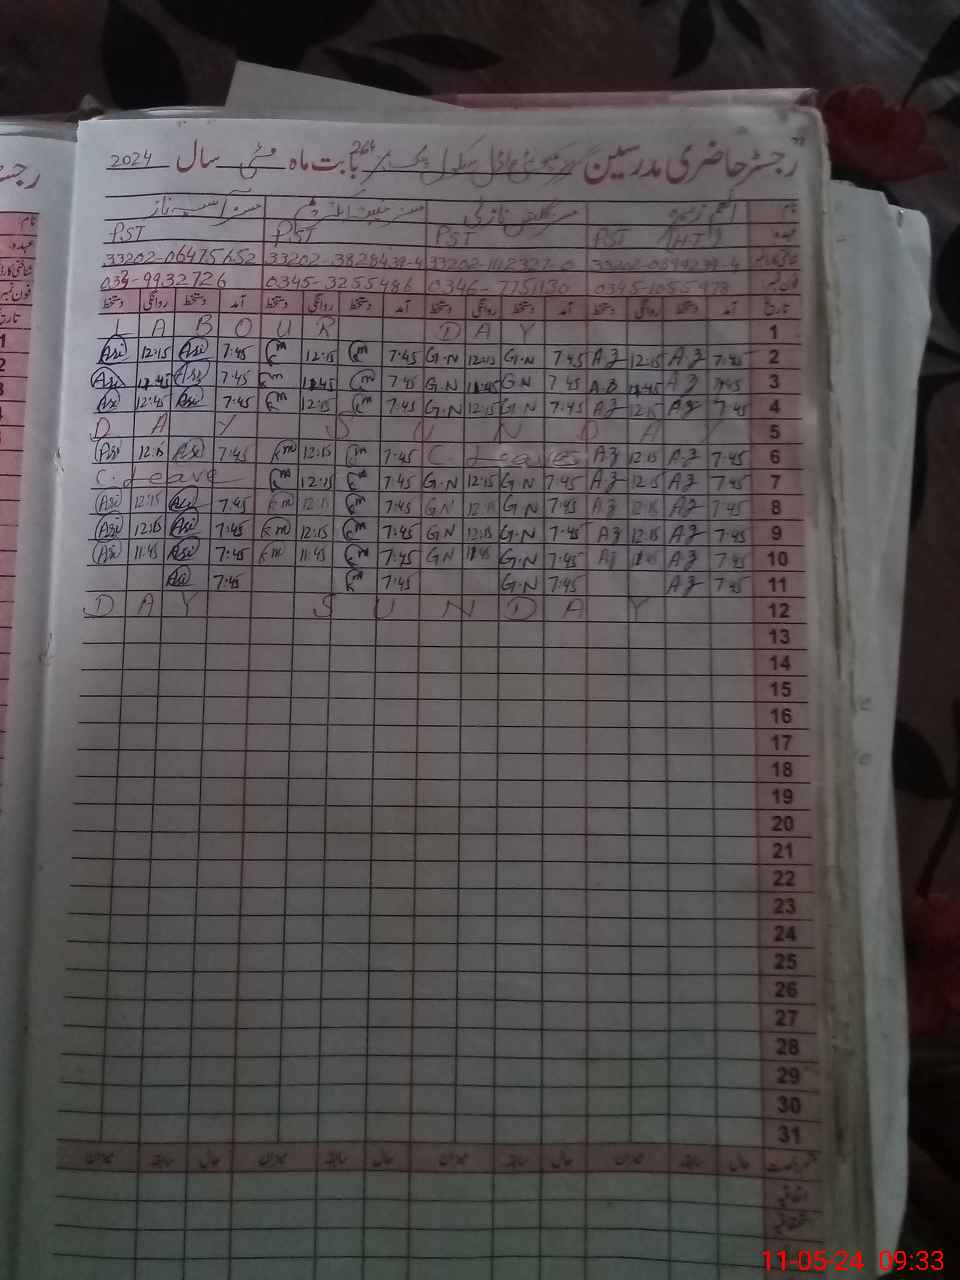 رجسٹر حاضری مدرسین گورنمنٹ ماڈل سکول چک نمبر 264 بابت ماہ مئی سال 2024
نام
عہدہ PST (HT) PST PST PST
شناختی کارڈ 33202-1112327-0 33202-3828439-4 33202-0647565 2
فون نمبر 0345-1055978 0346-7751130 0345-3255486
تاریخ آمد دستخط روانگی دستخط آمد دستخط روانگی دستخط آمد دستخط روانگی دستخط آمد دستخط روانگی دستخط
LABOUR DAY 1
Asi 12:15 Asi 7:45 Km 12:15 Km 7:45 G.N 12:15 G.N 7:45 AZ 12:15 AZ 7:45 2
Asi 11:45 Asi 7:45 Km 11:45 Km 7:45 G.N 11:45 G.N 7:45 AZ 11:45 AZ 7:45 3
Asi 12:45 Asi 7:45 Km 12:15 Km 7:45 G.N 12:15 G.N 7:45 AZ 12:15 AZ 7:45 4
DAY SUNDAY 5
Asi 12:15 Asi 7:45 Km 12:15 Km 7:45 C. Leave AZ 12:15 AZ 7:45 6
C. Leave Km 12:15 Km 7:45 G.N 12:15 G.N 7:45 AZ 12:15 AZ 7:45 7
Asi 12:15 Asi 7:45 Km 12:15 Km 7:45 G.N 12:15 G.N 7:45 AZ 12:15 AZ 7:45 8
Asi 12:15 Asi 7:45 Km 12:15 Km 7:45 G.N 12:15 G.N 7:45 AZ 12:15 AZ 7:45 9
Asi 11:45 Asi 7:45 Km 11:45 Km 7:45 G.N 11:45 G.N 7:45 AZ 11:45 AZ 7:45 10
Asi 7:45 Km 7:45 G.N 7:45 AZ 7:45 11
DAY SUNDAY 12
13
14
15
16
17
18
19
20
21
22
23
24
25
26
27
28
29
30
31
حال سابقہ میزان حال سابقہ میزان حال سابقہ میزان حال سابقہ میزان
اتفاقیہ
11-05-24 09:33